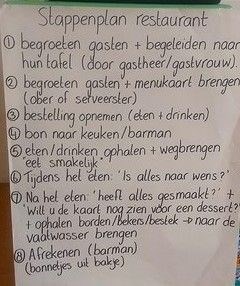 Stappenplan restaurant
① begroeten gasten + begeleiden naar
hun tafel (door gastheer/gastvrouw).
② begroeten gasten + menukaart brengen
(ober of serveerster)
③ bestelling opnemen (eten + drinken)
④ bon naar keuken/barman
⑤ eten/drinken ophalen + wegbrengen
"eet smakelijk"
⑥ Tijdens het eten: 'Is alles naar wens?'
⑦ Na het eten: 'heeft alles gesmaakt?' +
'Will u de kaart nog zien voor een dessert?'
+ ophalen borden/bekers/bestek → naar de
vaatwasser brengen
⑧ Afrekenen (barman)
(bonnetjes uit bakje)